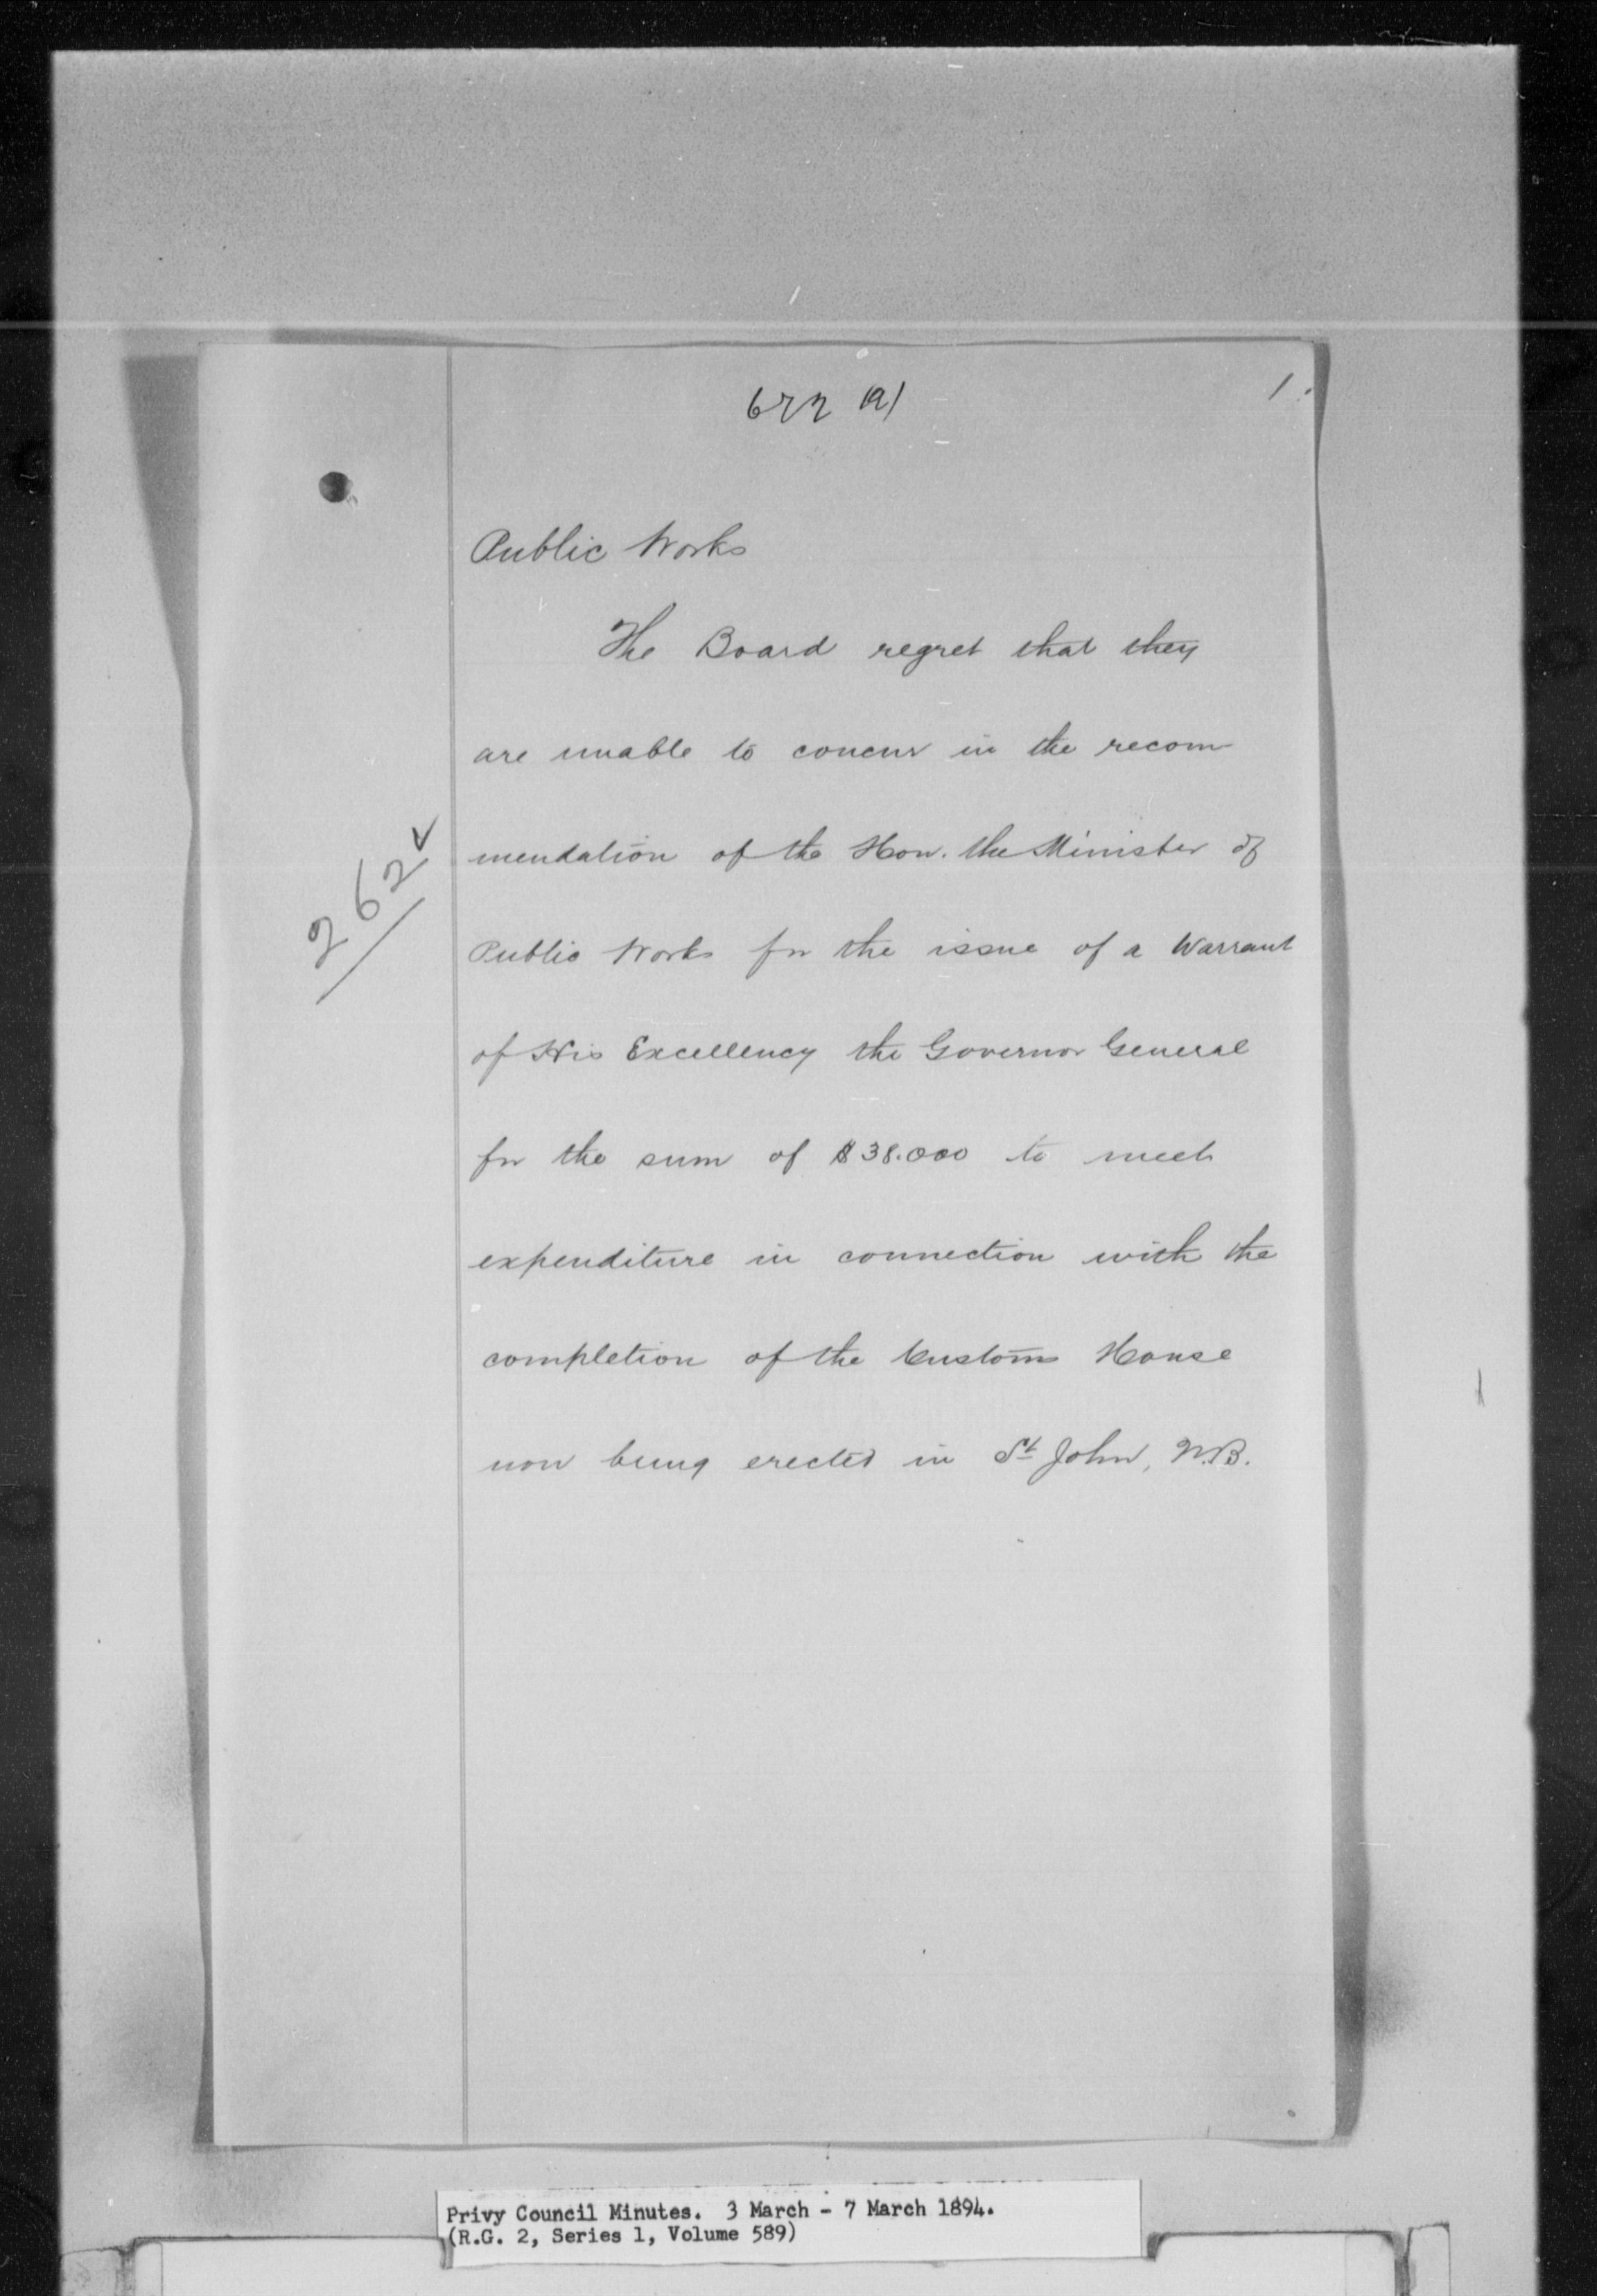 672 (a)
1.
Public Works
The Board regret that they
are unable to concur in the recom
mendation of the Hon. the Minister of
Public Works for the issue of a Warrant
of His Excellency the Governor General
for the sum of $38.000 to meet
expenditure in connection with the
completion of the Customs House
now being erected in St John, N.B.
262
Privy Council Minutes. 3 March - 7 March 1894.
(R.G. 2, Series 1, Volume 589)